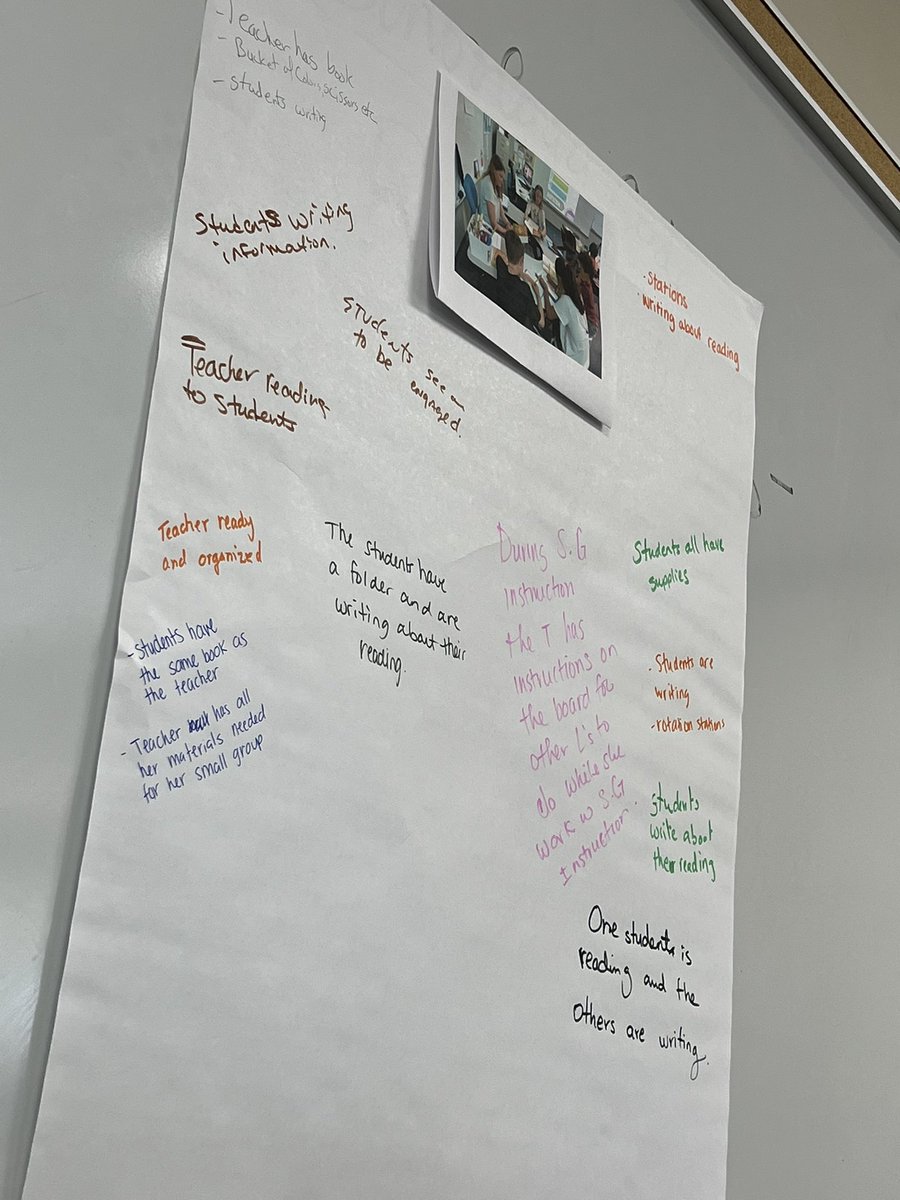 -Teacher has book
- Bucket of Colors, scissors etc
- students writing
Students writing
information.
Students seem
to be engaged.
Teacher reading
to students
- Stations
writing about reading
Teacher ready
and organized
-Students have
the same book as
the teacher
- Teacher has all
her materials needed
for her small group
The students have
a folder and are
writing about their
reading.
During S.G
instruction
the T has
instructions on
the board for
other L's to
do while she
work w S.G
Instruction.
Students all have
supplies
- Students are
writing
-rotation stations
Students
write about
their reading
One students is
reading and the
others are writing.